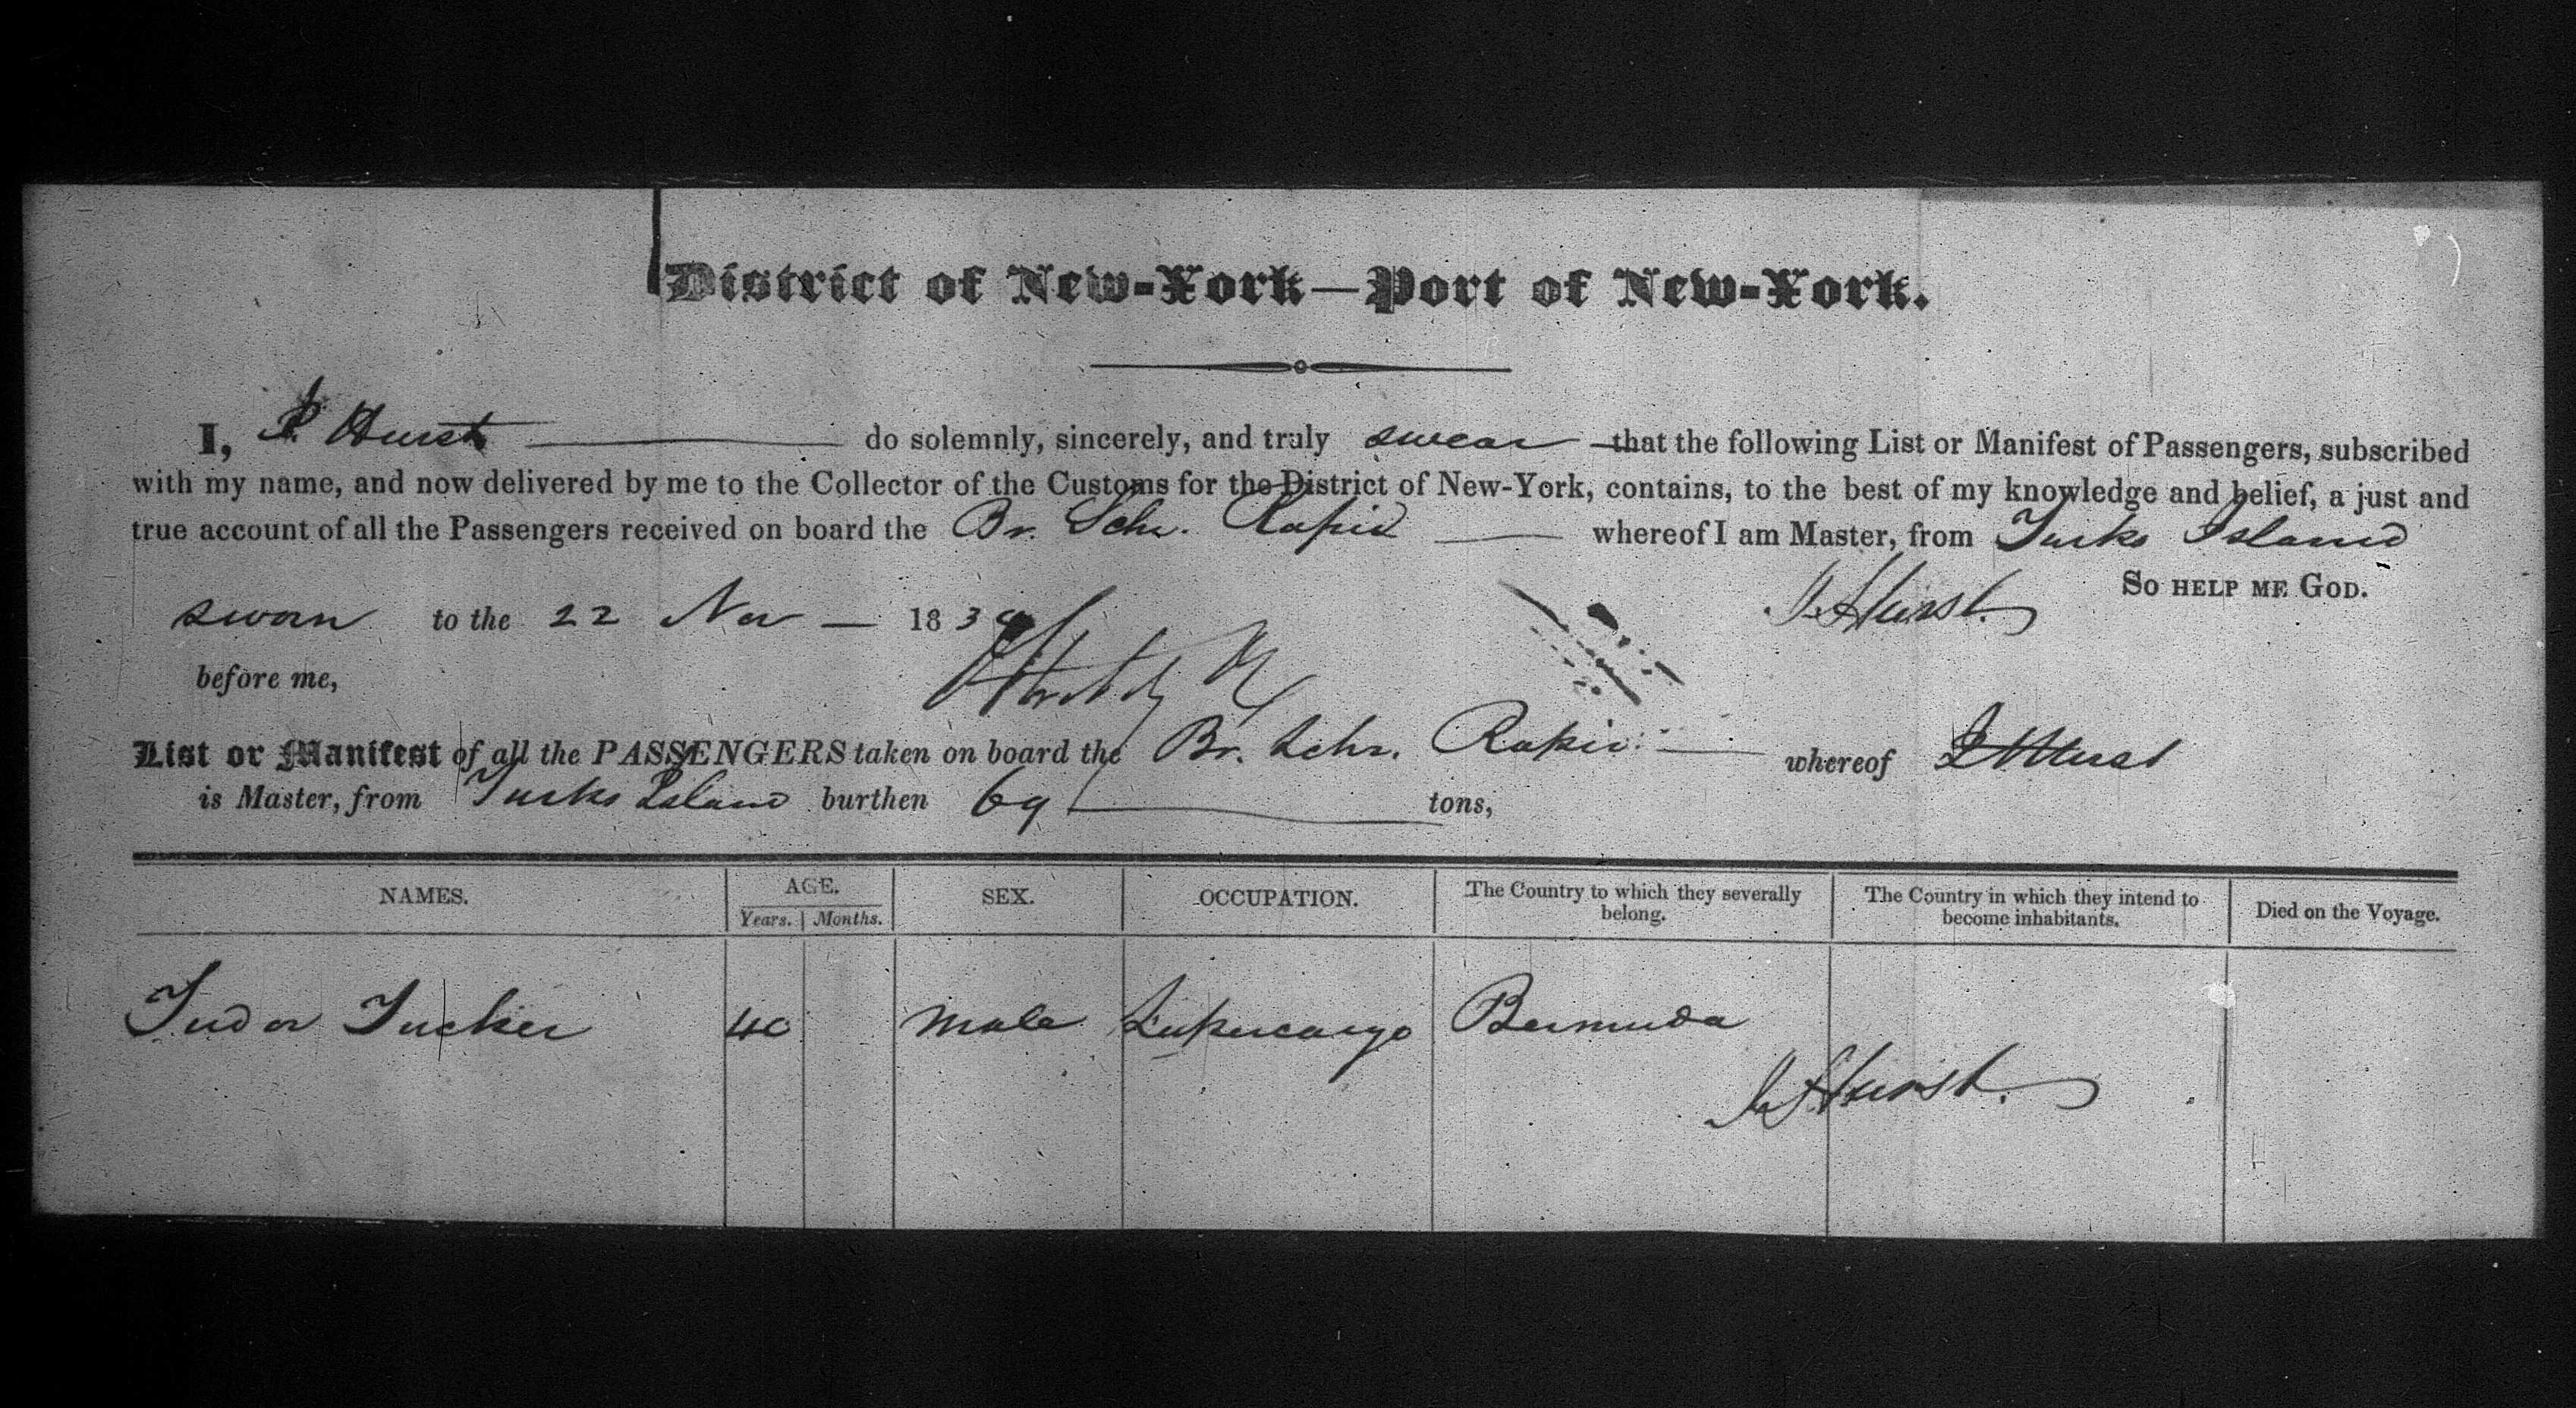 District of New-York—Port of New-York.
I, J. Hurst do solemnly, sincerely, and truly swear that the following List or Manifest of Passengers, subscribed
with my name, and now delivered by me to the Collector of the Customs for the District of New-York, contains, to the best of my knowledge and belief, a just and
true account of all the Passengers received on board the Br. Schr. Rapid whereof I am Master, from Turks Island
So help me God.
sworn to the 22 Nov — 183 J. Hurst.
before me,
List or Manifest of all the PASSENGERS taken on board the Br. Schr. Rapid whereof J Hurst
is Master, from Turks Island burthen 69 tons,
NAMES. AGE. Years. Months. SEX. OCCUPATION. The Country to which they severally belong. The Country in which they intend to become inhabitants. Died on the Voyage.
Tudor Tucker 40 Male Supercargo Bermuda
J. Hurst.